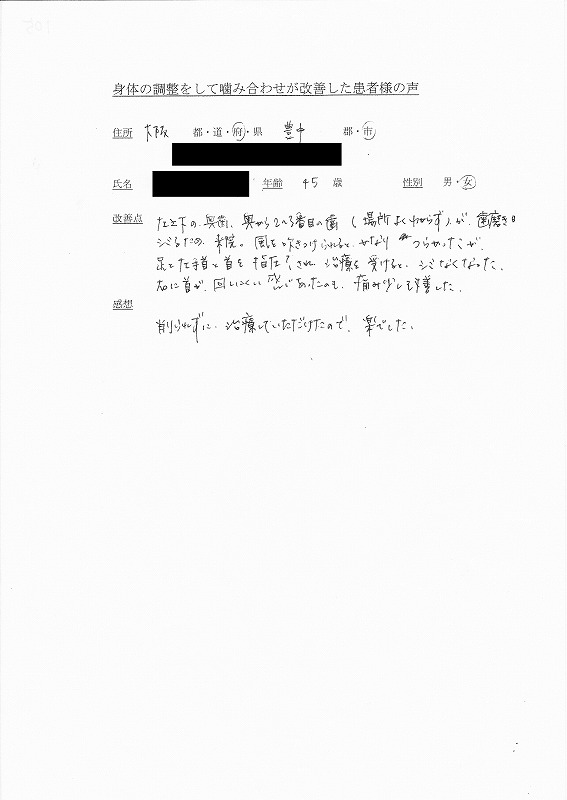 身体の調整をして噛み合わせが改善した患者様の声
住所 大阪 都・道・府・県 豊中 郡・市
氏名 年齢 45 歳 性別 男・女
改善点 左上下の奥歯、奥から2〜3番目の歯(場所よくわからず)が、歯磨き時
シミるため 来院。風を吹きつけられると、かなり つらかったが、
足と左手首と首を 指圧?され 治療を受けると、シミなくなった。
右に首が、回しにくい感じであったのも、痛み少し改善した。
感想
削られずに、治療していただけたので、楽でした。